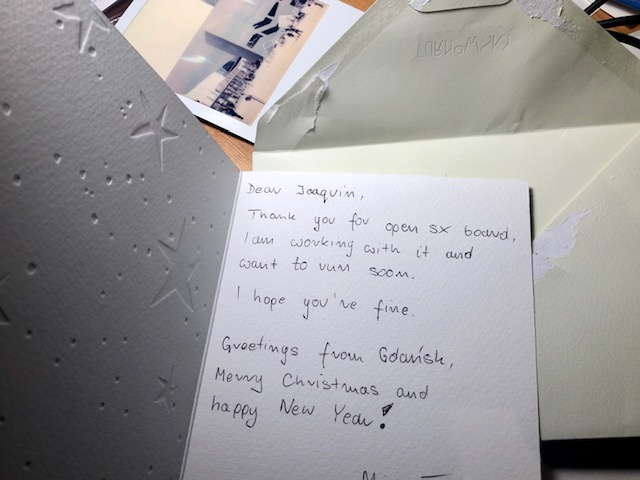 Dear Joaquin,
Thank you for open sx board,
I am working with it and
want to run soon.
I hope you're fine.
Greetings from Gdańsk,
Merry Christmas and
happy New Year!
TURNOWSKY